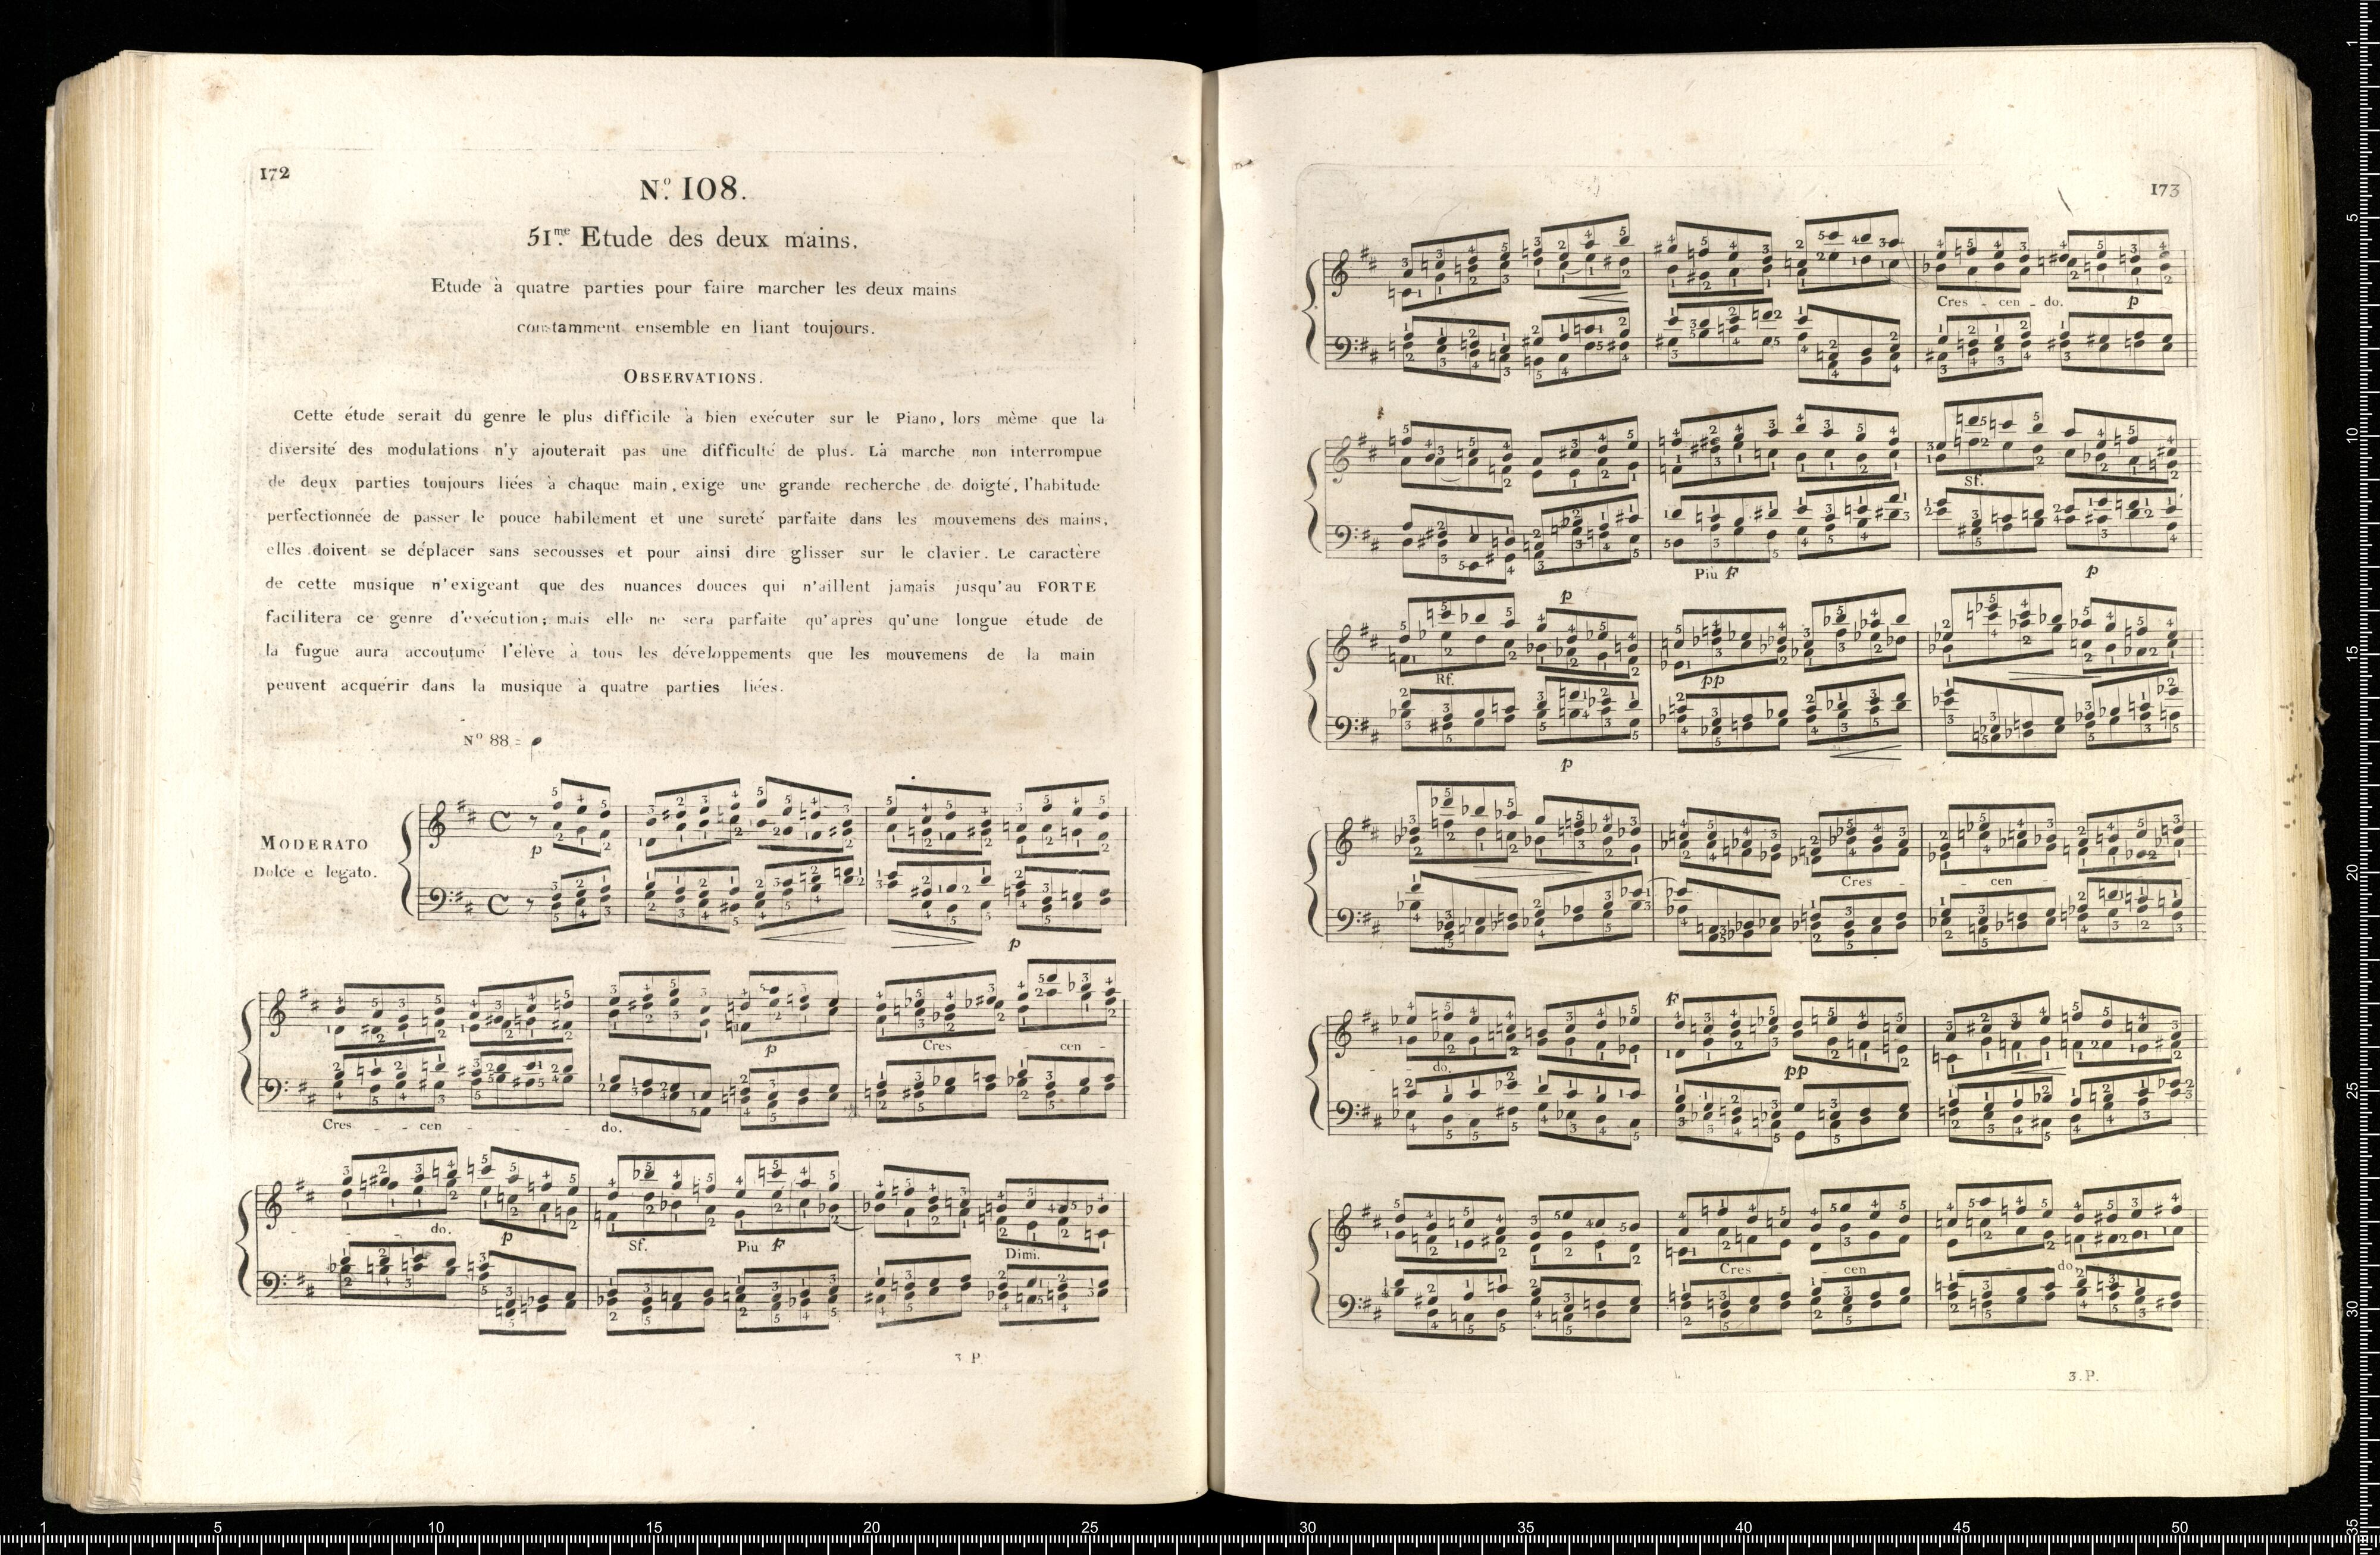 172
N.º 108.
51.me Etude des deux mains.
Etude à quatre parties pour faire marcher les deux mains
constamment ensemble en liant toujours.
OBSERVATIONS.
Cette étude serait du genre le plus difficile à bien exécuter sur le Piano, lors mème que la
diversité des modulations n'y ajouterait pas une difficulté de plus. La marche non interrompue
de deux parties toujours liées à chaque main, exige une grande recherche de doigté, l'habitude
perfectionnée de passer le pouce habilement et une sureté parfaite dans les mouvemens des mains,
elles doivent se déplacer sans secousses et pour ainsi dire glisser sur le clavier. Le caractère
de cette musique n'exigeant que des nuances douces qui n'aillent jamais jusqu'au FORTE
facilitera ce genre d'exécution; mais elle ne sera parfaite qu'après qu'une longue étude de
la fugue aura accoutumé l'élève à tous les développements que les mouvemens de la main
peuvent acquérir dans la musique à quatre parties liées.
Nº 88 =
MODERATO
Dolce e legato.
p
p
p Cres - cen -
Cres - - cen - - - - do.
do. p Sf. Piu F Dimi.
3 P.
173
Cres - cen - do. p
Sf.
Piu F p
p
Rf. pp
p
Cres - - cen -
F
- - do. pp
Cres - cen - - - do.
3. P.
1 5 10 15 20 25 30 35 40 45 50
1
5
10
15
20
25
30
35